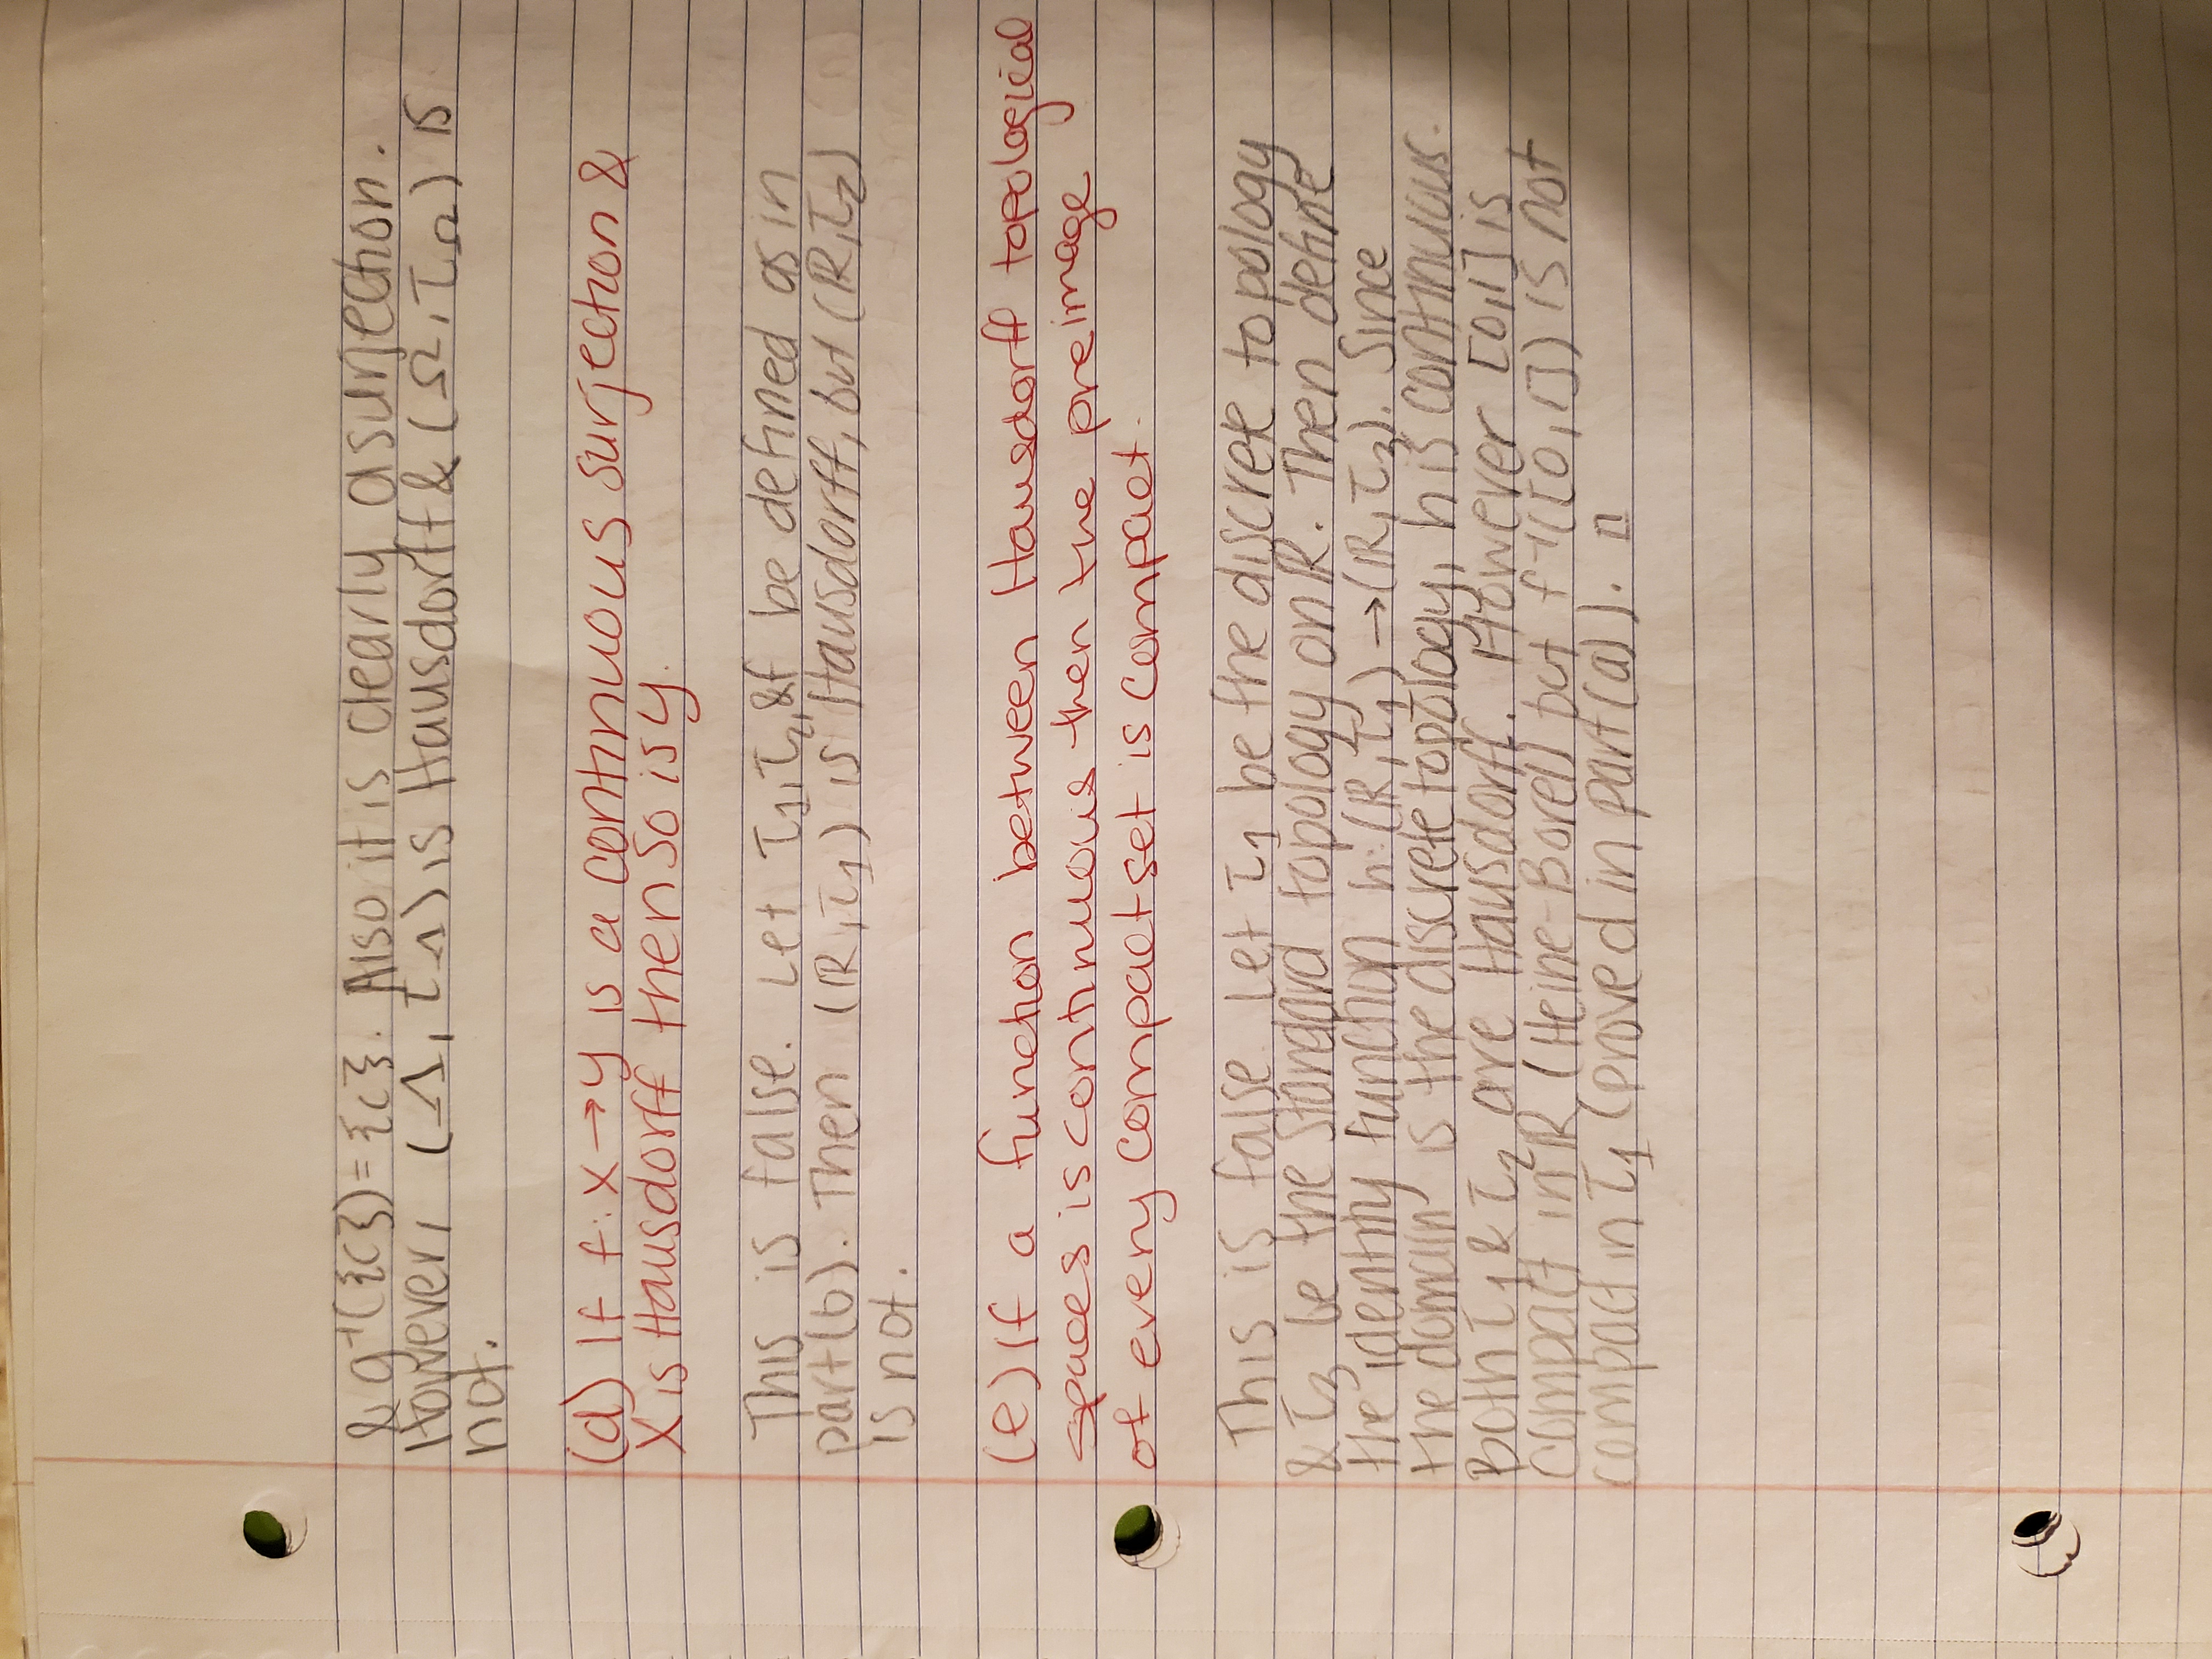 & g⁻¹({c}) = {c}. Also it is clearly a surjection.
However, (Λ, τ_Λ) is Hausdorff & (Ω, τ_Ω) is
not.
(d) If f: X → y is a continuous surjection &
X is Hausdorff then so is y.
This is false. Let τ₁, τ₂, & f be defined as in
part (b). Then (ℝ, τ₁) is Hausdorff, but (ℝ, τ₂)
is not.
(e) If a function between Hausdorff topological
spaces is continuous then the preimage
of every compact set is compact.
This is false. Let τ₁ be the discrete topology
& τ₃ be the standard topology on ℝ. Then define
the identity function h: (ℝ, τ₁) → (ℝ, τ₃). Since
the domain is the discrete topology, h is continuous.
Both τ₁ & τ₂ are Hausdorff. However [0,1] is
compact in ℝ (Heine-Borel) but f⁻¹([0,1]) is not
compact in τ₁ (proved in part (a)). □